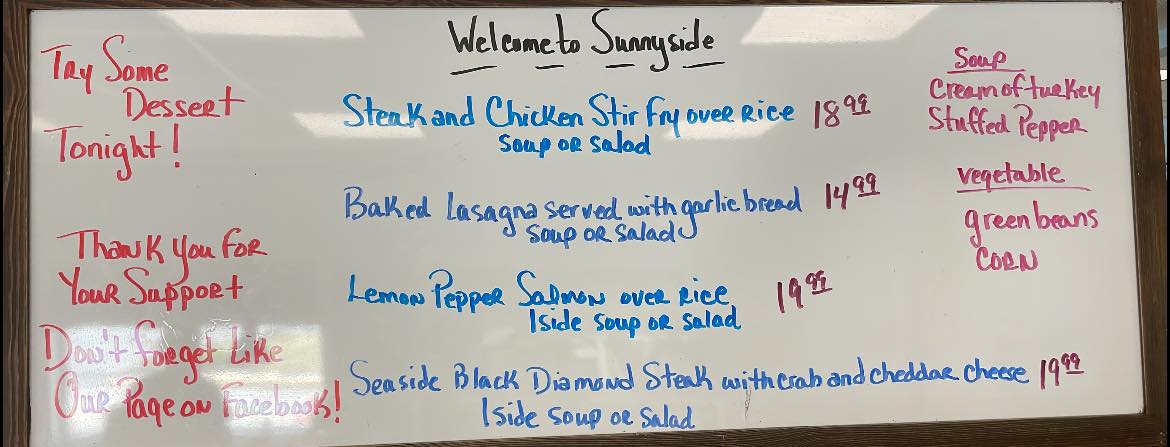 Welcome to Sunnyside
Try Some
Dessert
Tonight!
Thank you for
Your Support
Don't forget Like
Our Page on Facebook!
Steak and Chicken Stir fry over Rice 18.99
Soup or Salad
Baked Lasagna served with garlic bread 14.99
soup or salad
Lemon Pepper Salmon over Rice 19.99
1side soup or salad
Seaside Black Diamond Steak with crab and cheddar cheese 19.99
1side soup or salad
Soup
Cream of turkey
Stuffed Pepper
vegetable
green beans
CORN